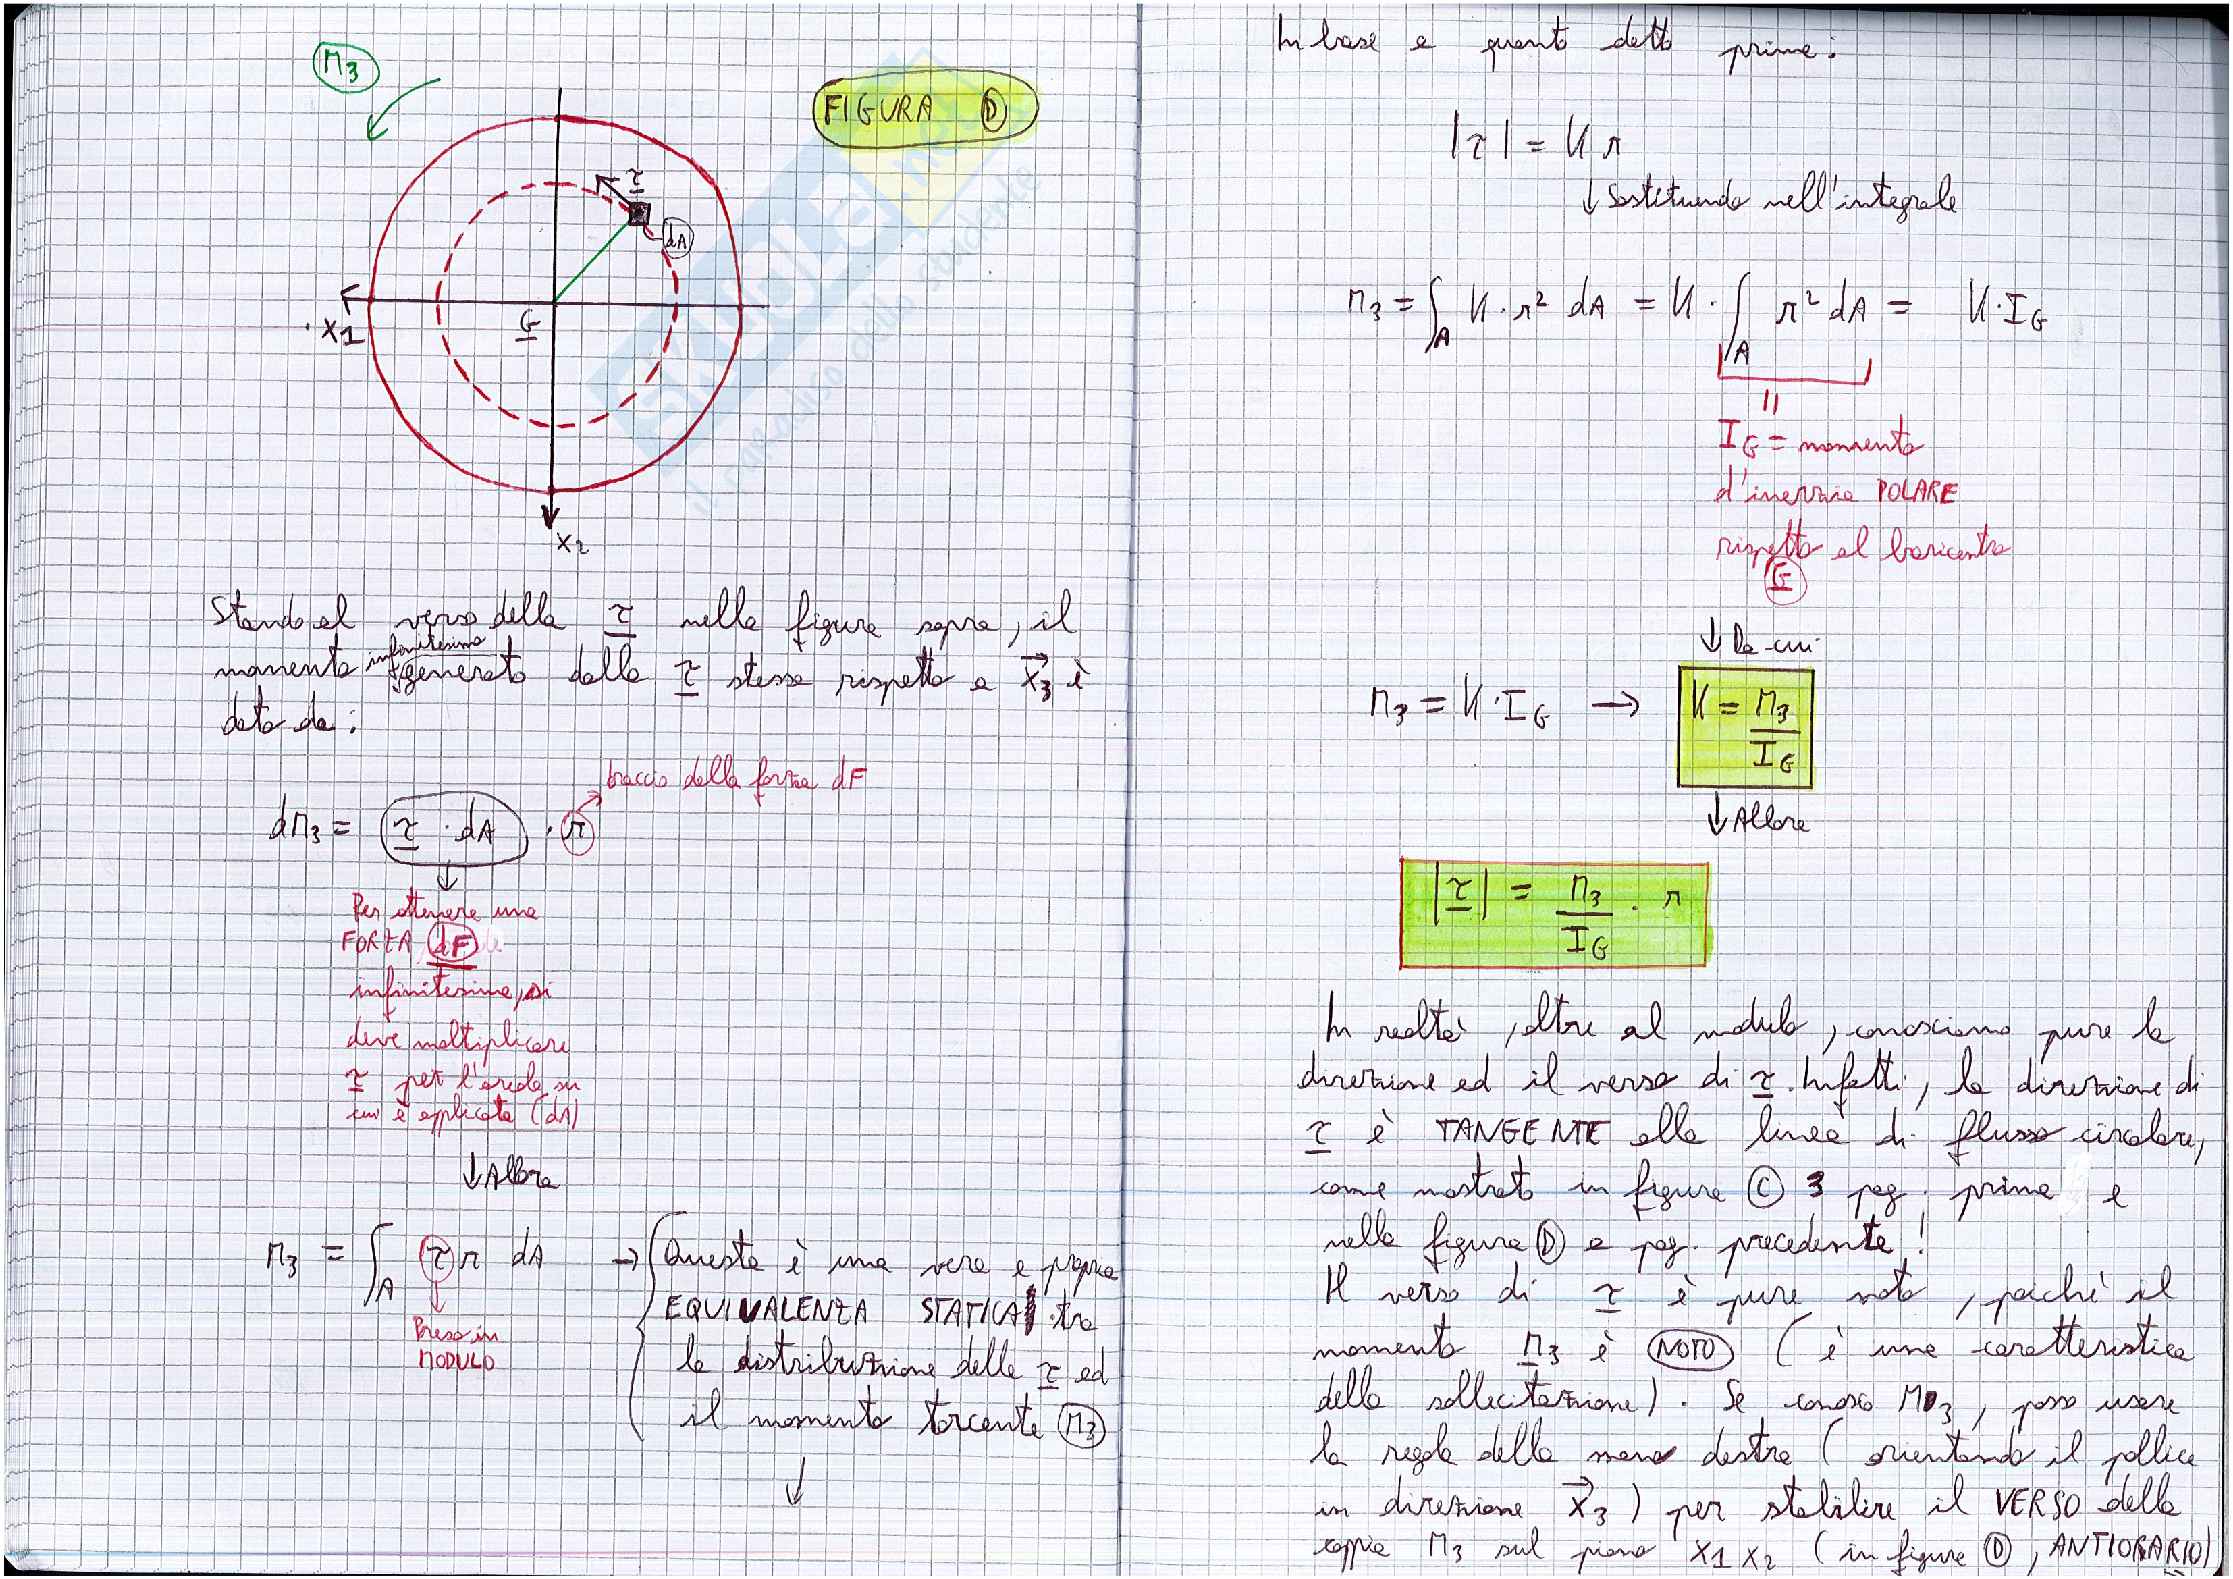 M3
FIGURA D
τ
dA
G
x1
x2
Stando al verso della τ nella figura sopra, il
momento infinitesimo generato dalla τ stessa rispetto a x3 è
dato da:
braccio della forza dF
dM3 = τ · dA · r
Per ottenere una
FORZA dF
infinitesima, si
deve moltiplicare
τ per l'areola su
cui è applicata (dA)
↓ Allora
M3 = ∫A τ r dA → Questa è una vera e propria
Preso in
MODULO
EQUIVALENZA STATICA tra
la distribuzione delle τ ed
il momento torcente M3
↓
In base a quanto detto prima:
|τ| = K r
↓ Sostituendo nell'integrale
M3 = ∫A K · r² dA = K · ∫A r² dA = K · IG
=
IG = momento
d'inerzia POLARE
rispetto al baricentro
G
↓ Da cui
M3 = K · IG → K = M3 / IG
↓ Allora
|τ| = M3 / IG · r
In realtà, oltre al modulo, conosciamo pure la
direzione ed il verso di τ. Infatti, la direzione di
τ è TANGENTE alla linea di flusso circolare,
come mostrato in figura C 3 pag. prima e
nella figura D a pag. precedente!
Il verso di τ è pure noto, poichè il
momento M3 è NOTO (è una caratteristica
della sollecitazione). Se conosco M3, posso usare
la regola della mano destra (orientando il pollice
in direzione x3) per stabilire il VERSO della
coppia M3 sul piano x1 x2 (in figura D, ANTIORARIO)
il paradiso dello studente